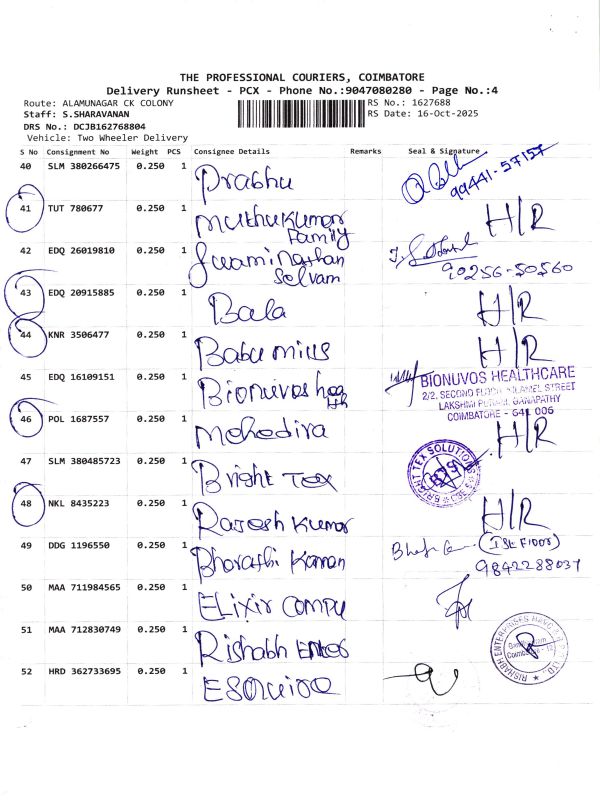 THE PROFESSIONAL COURIERS, COIMBATORE
Delivery Runsheet - PCX - Phone No.:9047080280 - Page No.:4
Route: ALAMUNAGAR CK COLONY RS No.: 1627688
Staff: S.SHARAVANAN RS Date: 16-Oct-2025
DRS No.: DCJB162768804
Vehicle: Two Wheeler Delivery
S No Consignment No Weight PCS Consignee Details Remarks Seal & Signature
40 SLM 380266475 0.250 1 Prabhu 99441-57157
41 TUT 780677 0.250 1 Muthukumar Family H/R
42 EDQ 26019810 0.250 1 Swaminathan Selvam 90256-50560
43 EDQ 20915885 0.250 1 Bala H/R
44 KNR 3506477 0.250 1 Babu mius H/R
45 EDQ 16109151 0.250 1 Bionuvos BIONUVOS HEALTHCARE
2/2, SECOND FLOOR, STREET
LAKSHMI PURAM, GANAPATHY
COIMBATORE - 641 006
46 POL 1687557 0.250 1 Mohodira H/R
47 SLM 380485723 0.250 1 Bright Tex BRIGHT TEX SOLUTIONS
48 NKL 8435223 0.250 1 Rajesh Kumar H/R
49 DDG 1196550 0.250 1 Bharathi Kannan (1st Floor)
9842288037
50 MAA 711984565 0.250 1 Elixir Compu
51 MAA 712830749 0.250 1 Rishabh Enter RISHABH ENTERPRISES
52 HRD 362733695 0.250 1 Esquire